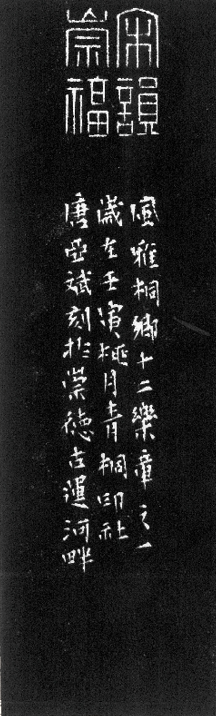 宋韻
崇福
風雅桐鄉十二樂章之一
歲在壬寅桃月青桐印社
唐岳斌刻於崇德古運河畔